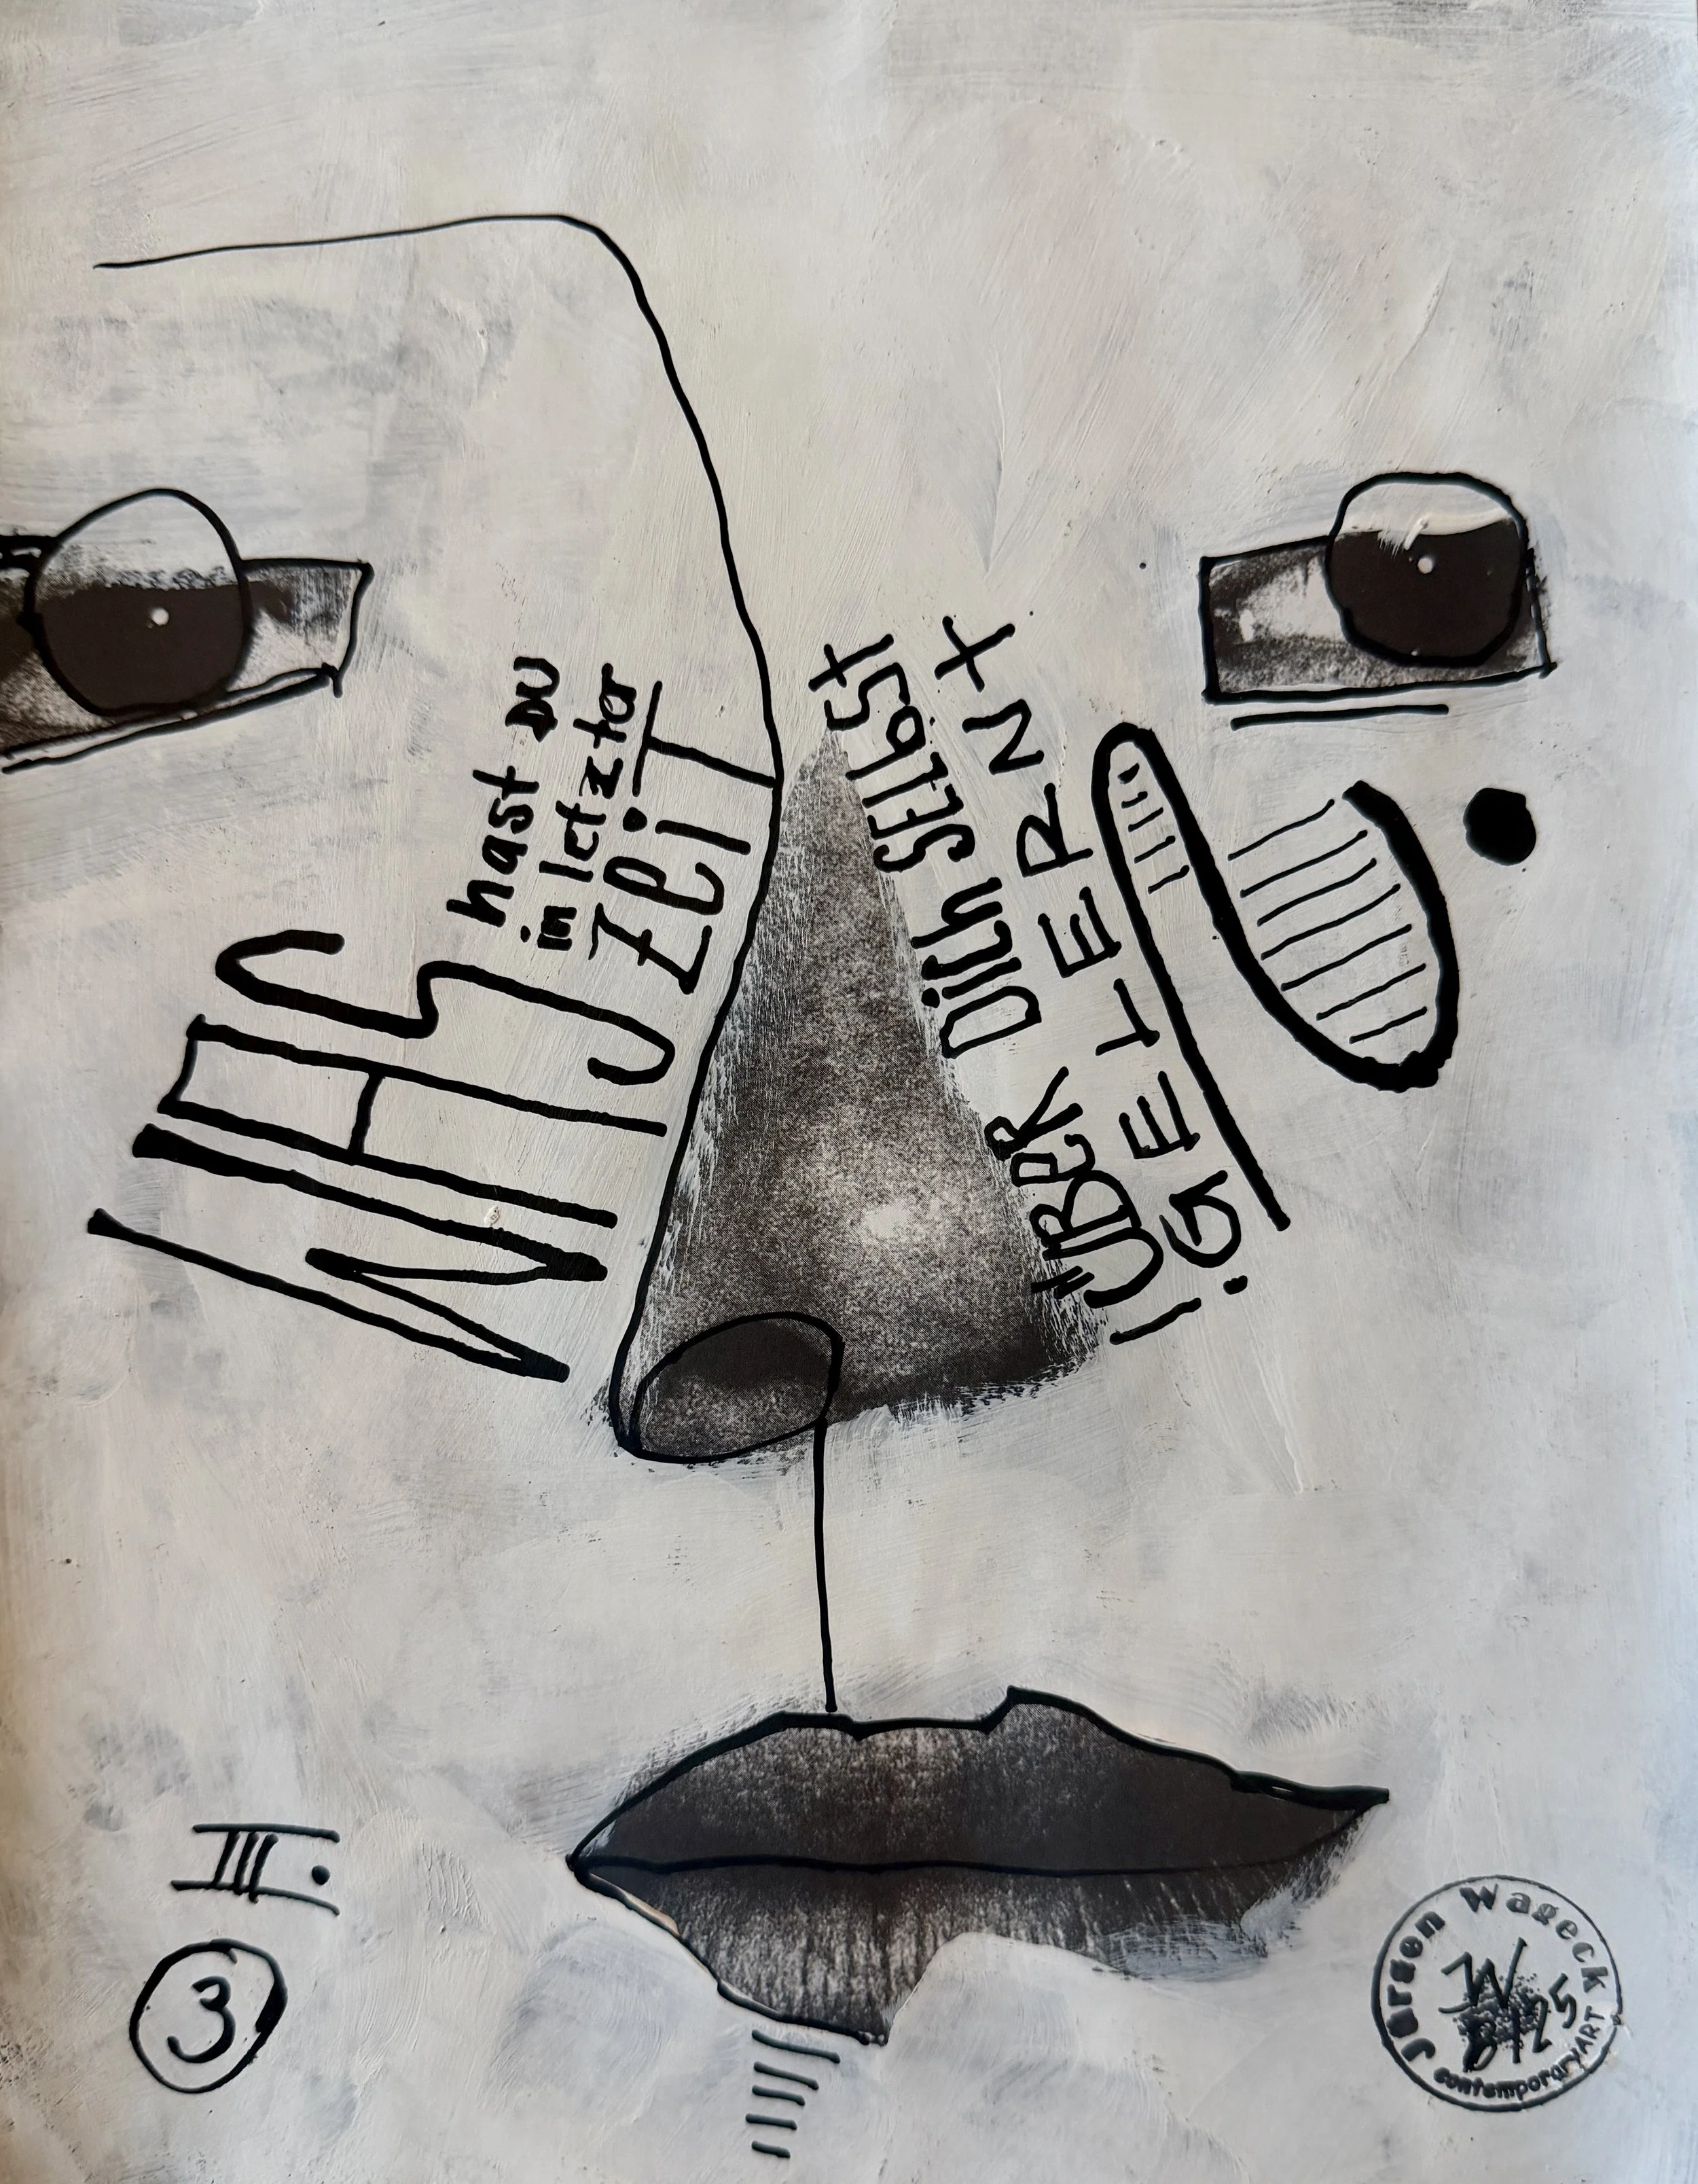 WAS
hast DU
in letzter
ZEiT
ÜBER DiCH SELBST
GELERNT
?
III.
3
Jürgen Wageck
JW
8/25
contemporaryART